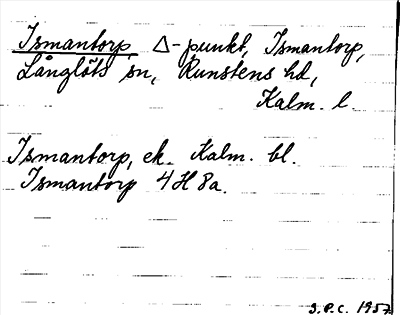 Ismantorp Δ-punkt, Ismantorp,
Långlöts sn, Runstens hd,
Kalm. l.
Ismantorp, ek. Kalm. bl.
Ismantorp 4H 8a.
S.P.C. 1957